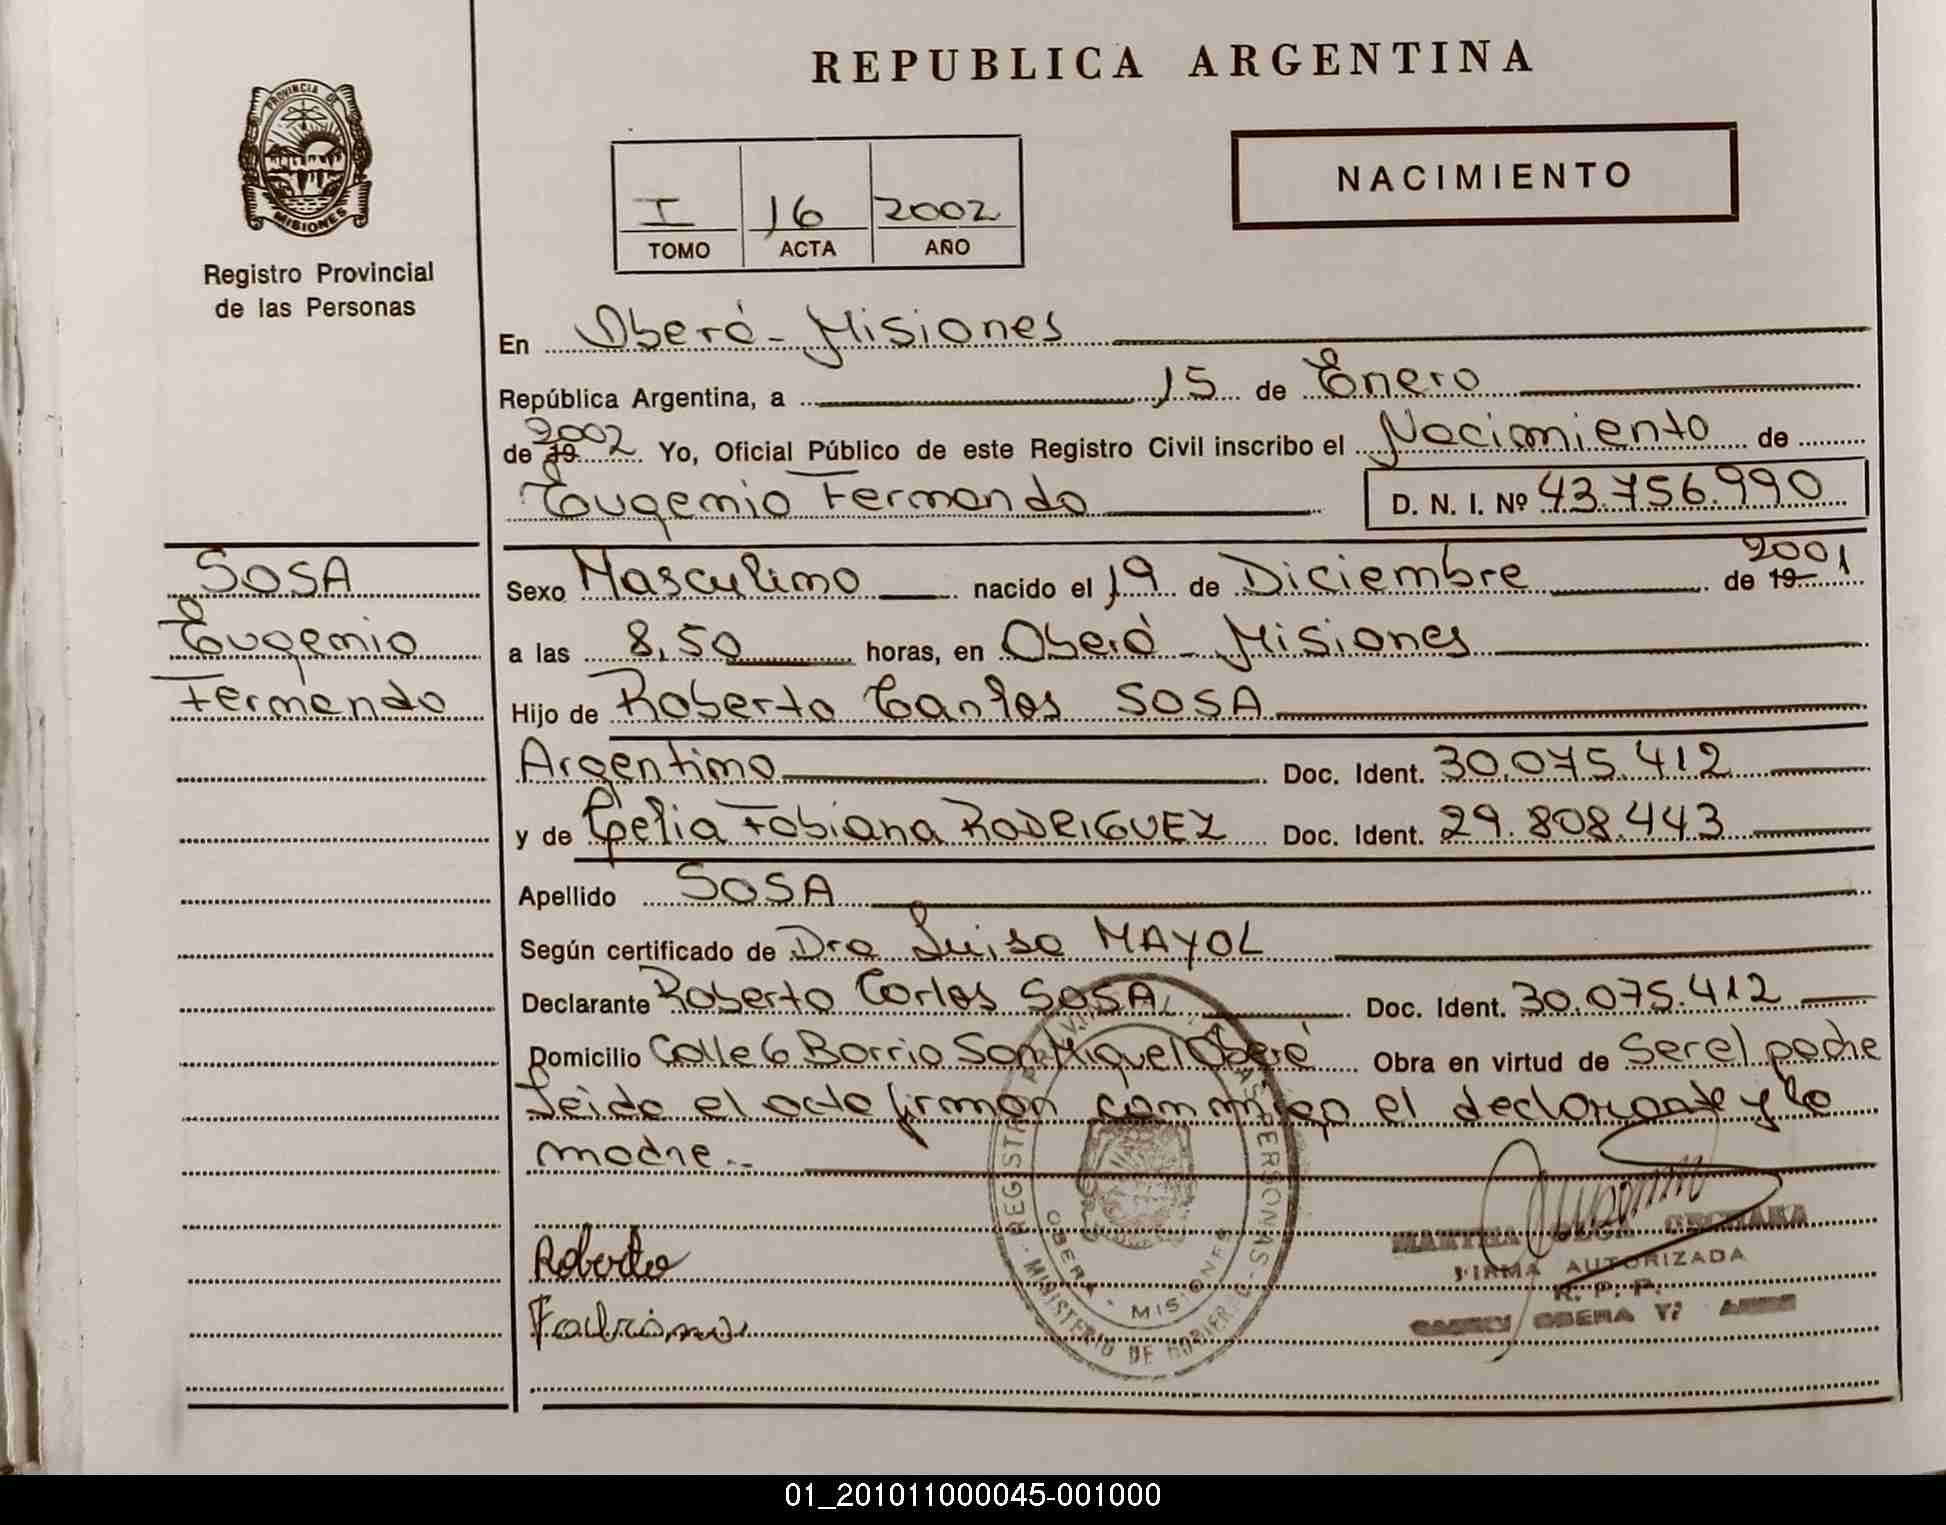 REPUBLICA ARGENTINA
PROVINCIA DE
MISIONES
Registro Provincial
de las Personas
I 16 2002
TOMO ACTA AÑO
NACIMIENTO
En Oberá - Misiones
República Argentina, a 15 de Enero
de 19 2002 Yo, Oficial Público de este Registro Civil inscribo el Nacimiento de
Eugenio Fernando D. N. I. Nº 43.756.990
SOSA
Eugenio
Fernando
Sexo Masculino nacido el 19 de Diciembre de 19 2001
a las 8,50 horas, en Oberá - Misiones
Hijo de Roberto Carlos SOSA
Argentino Doc. Ident. 30.075.412
y de Celia Fabiana RODRIGUEZ Doc. Ident. 29.808.443
Apellido SOSA
Según certificado de Dra Luisa MAYOL
Declarante Roberto Carlos SOSA Doc. Ident. 30.075.412
Domicilio Calle 6 Barrio San Miguel Oberá Obra en virtud de Ser el padre
Leida el acta firman conmigo el declarante y la
madre.-
Roberto
MARTHA OLGA
FIRMA AUTORIZADA
R. P. P.
OBERA
REGISTRO PROVINCIAL DE LAS PERSONAS - MINISTERIO DE GOBIERNO
OBERA - MISIONES
01_201011000045-001000